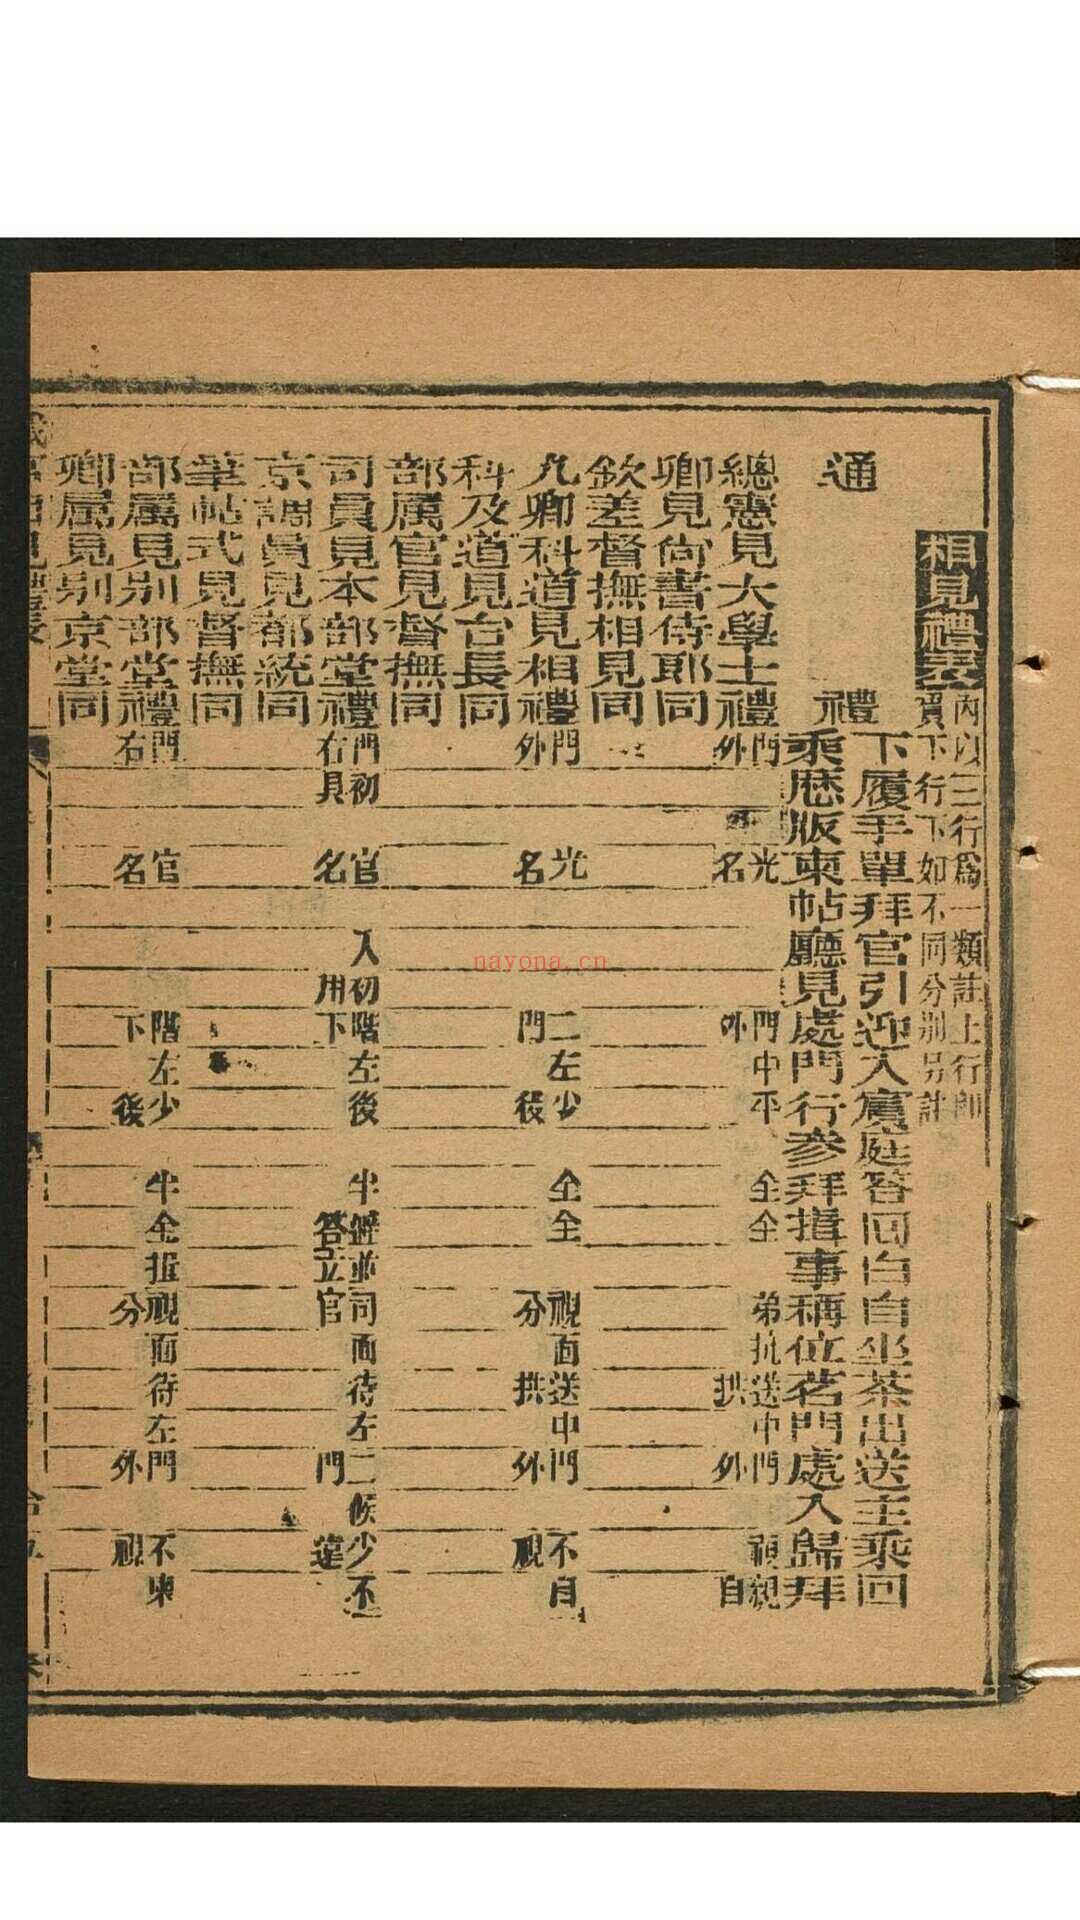 相見禮表
內以三行爲一類註上行即
貿下行下如不同分別另註
通禮
下履手單拜官引迎入賓庭答回白自坐茶出送主乘回
乘歷版柬帖廳見處門行參拜揖事稱位茗門處入歸拜
總憲見大學士禮 門外 光名 門外 中 平 全 全 弟 抗 送拱 中 門外 親自
卿見尚書侍郎同
欽差督撫相見同
九卿科道見相禮 門外 光名 二門 左 少後 全 全 視分 面 送拱 中 門外 不視 自
科及道見台長同
部属官見督撫同
司員見本部堂禮 門右 初具 官名 入 初用 階下 左 後 半 避答 並立 司官 面 待 左 二門 候 少 不
京調員見都統同
筆帖式見督撫同
部属見別部堂禮 門右 官名 階下 左 少後 半 全 揖 視分 面 待 左 門外 不視 柬
卿属見别京堂同
nayona.cn